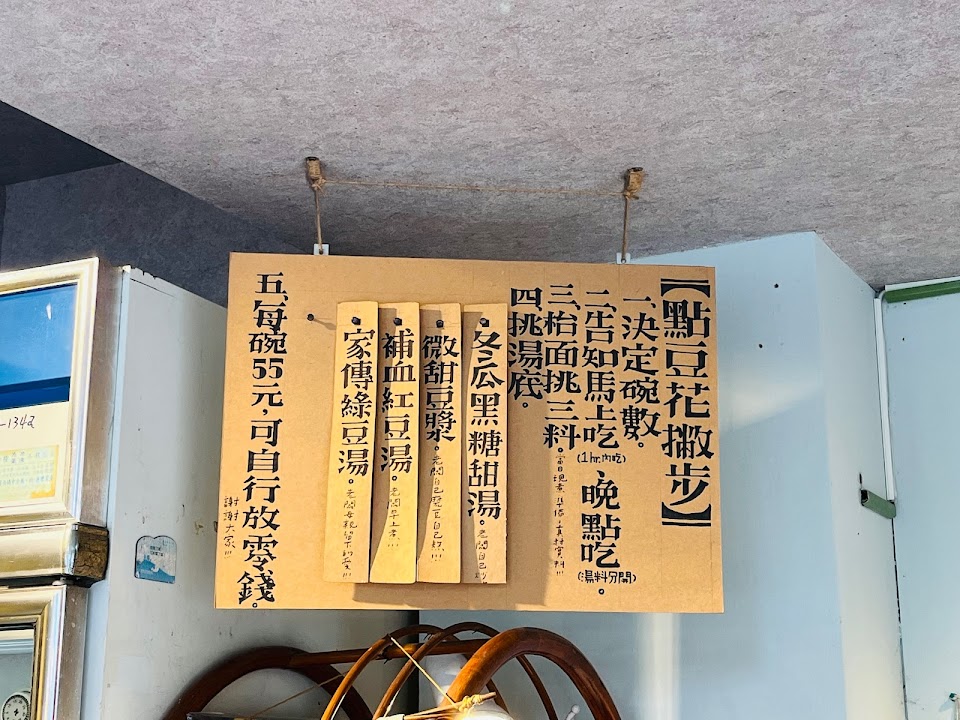 【點豆花撇步】
一、決定碗數。
二、告知馬上吃(1hr.內吃)、晚點吃(湯料分開)。
三、枱面挑三料。
四、挑湯底。
冬瓜黑糖甜湯。老闆自己炒
微甜豆漿。老闆自己磨豆自己煮!!!
補血紅豆湯。老闆早上煮!!!
家傳綠豆湯。老闆母親留下的愛!!!
五、每碗55元,可自行放零錢。
謝謝大家!!!
-1342